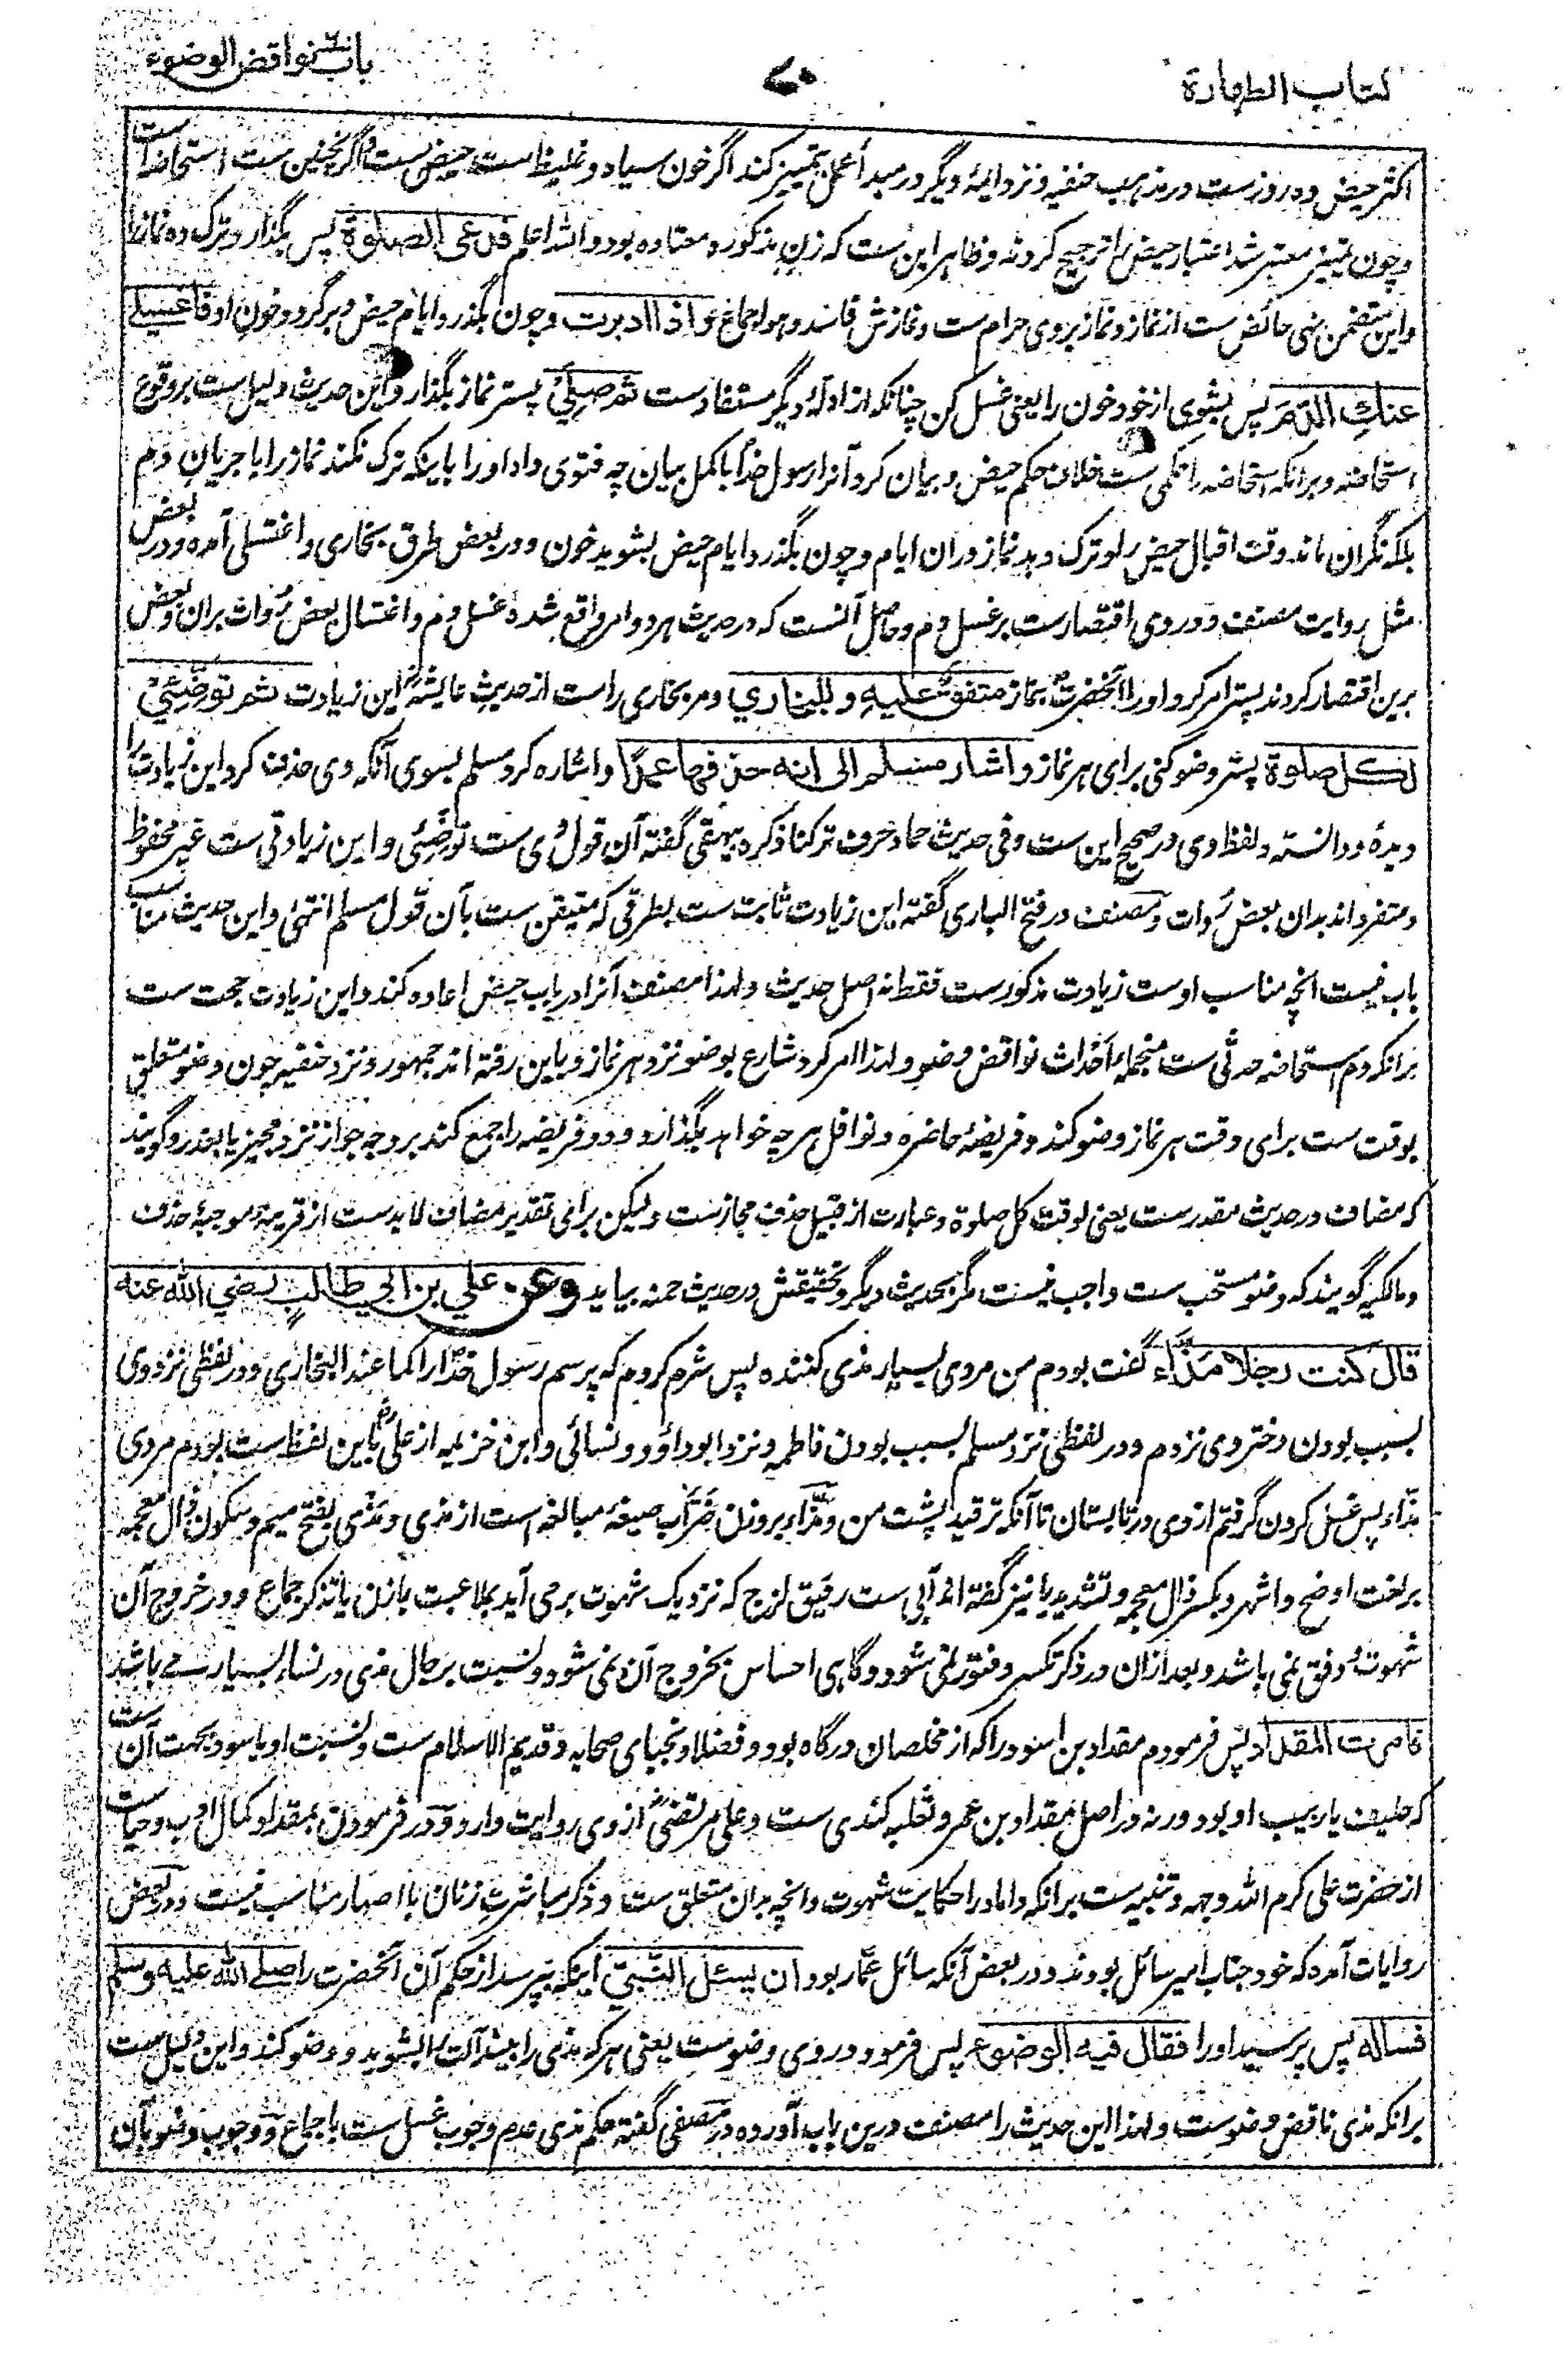 کتاب الطهارة
۷۰
باب نواقض الوضوء
اکثر حیض ده روزست در مذهب حنفیه و نزد ایمهٔ دیگر در مبدأ عمل بتمییز کند اگر خون سیاه و غلیظ است حیض ست و اگر نچنین ست استحاضه است
و چون تمیز معتبر شد اعتبار حیض را ترجیح کردند و ظاهر این ست که زن مذکوره معتاده بود والله اعلم فدعی الصلوة پس بگذار و ترک ده نماز را
و این متضمن نهی حائض ست از نماز و نماز بروی حرام ست و نمازش فاسد و هو اجماع و اذا ادبرت و چون بگذرد ایام حیض و برگردد خون او فاغسلی
عنك الدم پس بشوی از خود خون را یعنی غسل کن چنانکه از ادلهٔ دیگر مستفادست ثم صلی پستر نماز بگذار و این حدیث دلیل ست بر وقوع
استحاضه و برانکه استحاضه را حکمی ست خلاف حکم حیض و بیان کرد آنرا رسول خدا باکمل بیان چه فتوی داد او را باینکه ترک نکند نماز را با جریان دم
بلکه نگران ماند وقت اقبال حیض را و ترک دهد نماز دران ایام و چون بگذرد ایام حیض بشوید خون و در بعض طرق بخاری واغتسلی آمده و در بعض
مثل روایت مصنف و در وی اقتصارست بر غسل دم و حاصل آنست که در حدیث هر دو امر واقع شده غسل دم و اغتسال بعض رُوات بران و بعض
برین اقتصار کردند پستر امر کرد او را آنحضرت بنماز متفق علیه و للبخاري و مر بخاری راست از حدیث عایشه این زیادت ثم توضئي
لکل صلوة پستر وضو کنی برای هر نماز و اشار مسلم الی انه حذفها عمدًا و اشاره کرد مسلم بسوی آنکه وی حذف کرد این زیادت را
دیده و دانسته و لفظ وی در صحیح این ست و فی حدیث حماد حرف ترکنا ذکره بیهقی گفته آن قول وُی ست توضئی و این زیادتی ست غیر محفوظ
و متفرد اند بدان بعض رُوات و مصنف در فتح الباری گفته این زیادت ثابت ست بطرقی که متیقن ست بآن قول مسلم انتهی و این حدیث مناسب
باب نیست انچه مناسب اوست زیادت مذکورست فقط نه اصل حدیث و لهذا مصنف آنرا در باب حیض اعاده کند و این زیادت حجت ست
برانکه دم استحاضه حدثی ست منجملهٔ احداث نواقض وضو و لهذا امر کرد شارع بوضو نزد هر نماز و باین رفته اند جمهور و نزد حنفیه چون وضو متعلق
بوقت ست برای وقت هر نماز وضو کند و فریضهٔ حاضره و نوافل هر چه خواهد بگذارد و دو فریضه را جمع کند بر وجه جواز نزد مجیز یا بعذر و گویند
که مضاف در حدیث مقدرست یعنی لوقت کل صلوة و عبارت از قبیل حذف مجازست و لیکن برای تقدیر مضاف لابدست از قرینهٔ موجبهٔ حذف
و مالکیه گویند که وضو مستحب ست واجب نیست مگر بحدیث دیگر و تحقیقش در حدیث حمنه بیاید وعن علي بن ابي طالب رضي الله عنه
قال کنت رجلا مذّاء گفت بودم من مردی بسیار مذی کننده پس شرم کردم که پرسم رسول خدا را کما عند البخاری و در لفظی نزد وی
بسبب بودن دختر وی نزدم و در لفظی نزد مسلم بسبب بودن فاطمه و نزد ابوداؤد و نسائی و ابن خزیمه از علی باین لفظ ست بودم مردی
مذّاء پس غسل کردن گرفتم از وی در تابستان تا آنکه ترقید پشت من و مذّاء بر وزن ضَرّاب صیغهٔ مبالغه است از مذی و مذی بفتح میم و سکون ذال معجمه
بر لغت اوضح و اشهر و بکسر ذال معجمه و تشدید یا نیز گفته اند آبی ست رقیق لزج که نزدیک شهوت برمی آید بملاعبت بازن یا تذکر جماع و در خروج آن
شهوت و دفق نمی باشد و بعد ازان در ذکر تکسر و فتور نمی شود و گاهی احساس بخروج آن نمی شود و نسبت برجال مذی در نساء بسیار سے باشد
فامرت المقداد پس فرمودم مقداد بن اسود را که از مخلصان درگاه بود و فضلا و نجبای صحابه و قدیم الاسلام ست و نسبت او باسود بجهت آن ست
که حلیف یا ربیب او بود ورنه در اصل مقداد بن عمرو ثعلبه کندی ست و علی مرتضی از وی روایت دارد و در فرمودن بمقداد کمال ادب و حیاست
از حضرت علی کرم الله وجهه و تنبیه ست برانکه داماد را حکایت شهوت و انچه بران متعلق ست و ذکر مباشرت زنان با اصهار مناسب نیست و در بعض
روایات آمده که خود جناب امیر سائل بودند و در بعض آنکه سائل عمّار بود ان یسئل النبیّ اینکه بپرسد از حکم آن آنحضرت را صلے الله علیه وسلم
فساله پس پرسید او را فقال فیه الوضوء پس فرمود در وی وضوست یعنی هر که مذی را بیند آلت را بشوید و وضو کند و این دلیل ست
برانکه مذی ناقض وضوست و لهذا این حدیث را مصنف درین باب آورده در مصفی گفته حکم مذی عدم وجوب غسل ست باجماع و وجوب وضو بآن